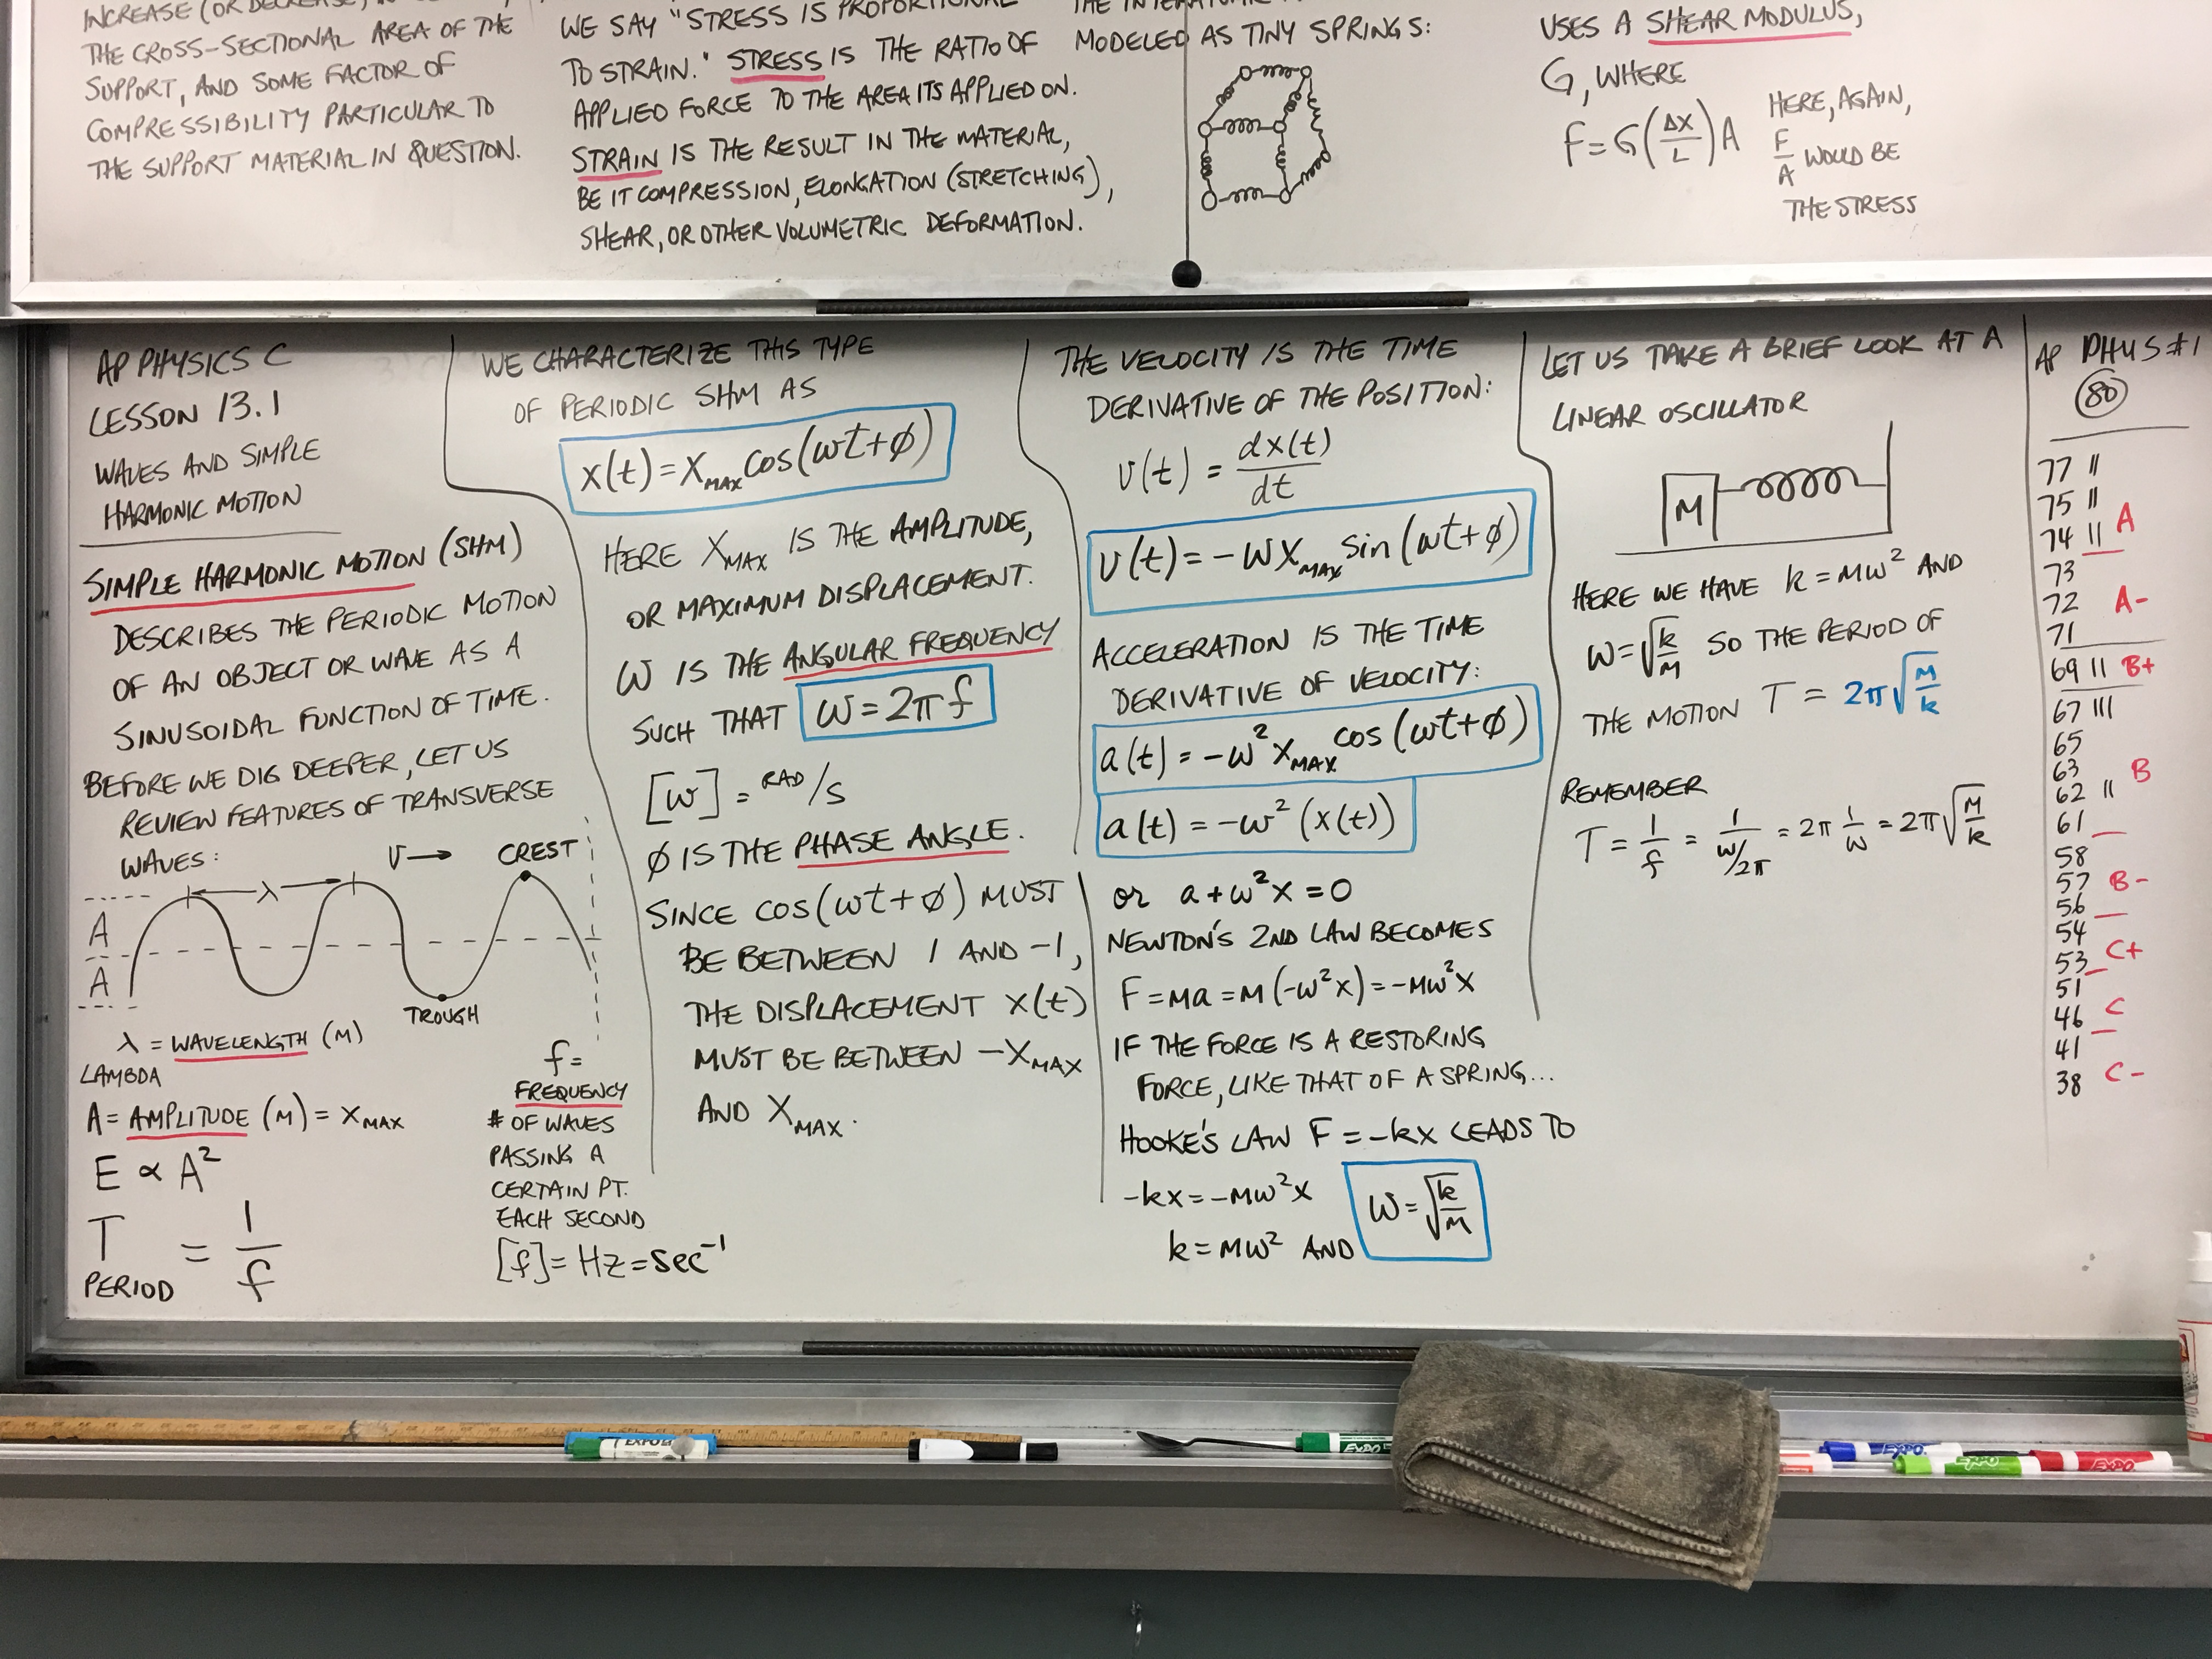 INCREASE (OR DECREASE)
THE CROSS-SECTIONAL AREA OF THE
SUPPORT, AND SOME FACTOR OF
COMPRESSIBILITY PARTICULAR TO
THE SUPPORT MATERIAL IN QUESTION.
WE SAY "STRESS IS PROPORTIONAL
TO STRAIN." STRESS IS THE RATIO OF
APPLIED FORCE TO THE AREA ITS APPLIED ON.
STRAIN IS THE RESULT IN THE MATERIAL,
BE IT COMPRESSION, ELONGATION (STRETCHING),
SHEAR, OR OTHER VOLUMETRIC DEFORMATION.
MODELED AS TINY SPRINGS:
USES A SHEAR MODULUS,
G, WHERE
F=G(ΔX/L)A
HERE, AGAIN,
F/A WOULD BE
THE STRESS
AP PHYSICS C
LESSON 13.1
WAVES AND SIMPLE
HARMONIC MOTION
SIMPLE HARMONIC MOTION (SHM)
DESCRIBES THE PERIODIC MOTION
OF AN OBJECT OR WAVE AS A
SINUSOIDAL FUNCTION OF TIME.
BEFORE WE DIG DEEPER, LET US
REVIEW FEATURES OF TRANSVERSE
WAVES:
v→ CREST
λ
A
A
TROUGH
λ = WAVELENGTH (M)
LAMBDA
A = AMPLITUDE (M) = XMAX
E ∝ A²
T = 1/f
PERIOD
f =
FREQUENCY
# OF WAVES
PASSING A
CERTAIN PT.
EACH SECOND
[f] = Hz = sec⁻¹
WE CHARACTERIZE THIS TYPE
OF PERIODIC SHM AS
x(t) = XMAX cos(ωt+φ)
HERE XMAX IS THE AMPLITUDE,
OR MAXIMUM DISPLACEMENT.
ω IS THE ANGULAR FREQUENCY
SUCH THAT ω = 2πf
[ω] = RAD/s
φ IS THE PHASE ANGLE.
SINCE cos(ωt+φ) MUST
BE BETWEEN 1 AND -1,
THE DISPLACEMENT x(t)
MUST BE BETWEEN -XMAX
AND XMAX.
THE VELOCITY IS THE TIME
DERIVATIVE OF THE POSITION:
v(t) = dx(t)/dt
v(t) = -ωXMAX sin(ωt+φ)
ACCELERATION IS THE TIME
DERIVATIVE OF VELOCITY:
a(t) = -ω²XMAX cos(ωt+φ)
a(t) = -ω²(x(t))
or a+ω²x = 0
NEWTON'S 2ND LAW BECOMES
F = Ma = M(-ω²x) = -Mω²x
IF THE FORCE IS A RESTORING
FORCE, LIKE THAT OF A SPRING...
HOOKE'S LAW F = -kx LEADS TO
-kx = -Mω²x
k = Mω² AND ω = √(k/M)
LET US TAKE A BRIEF LOOK AT A
LINEAR OSCILLATOR
M
HERE WE HAVE k = Mω² AND
ω = √(k/M) SO THE PERIOD OF
THE MOTION T = 2π√(M/k)
REMEMBER
T = 1/f = 1/(ω/2π) = 2π 1/ω = 2π√(M/k)
AP PHYS #1
80
77 ||
75 ||
74 || A
73
72 A-
71
69 || B+
67 |||
65
63 B
62 ||
61
58
57 B-
56
54
53 C+
51
46 C
41
38 C-
EXPO
EXPO
EXPO
EXPO
EXPO